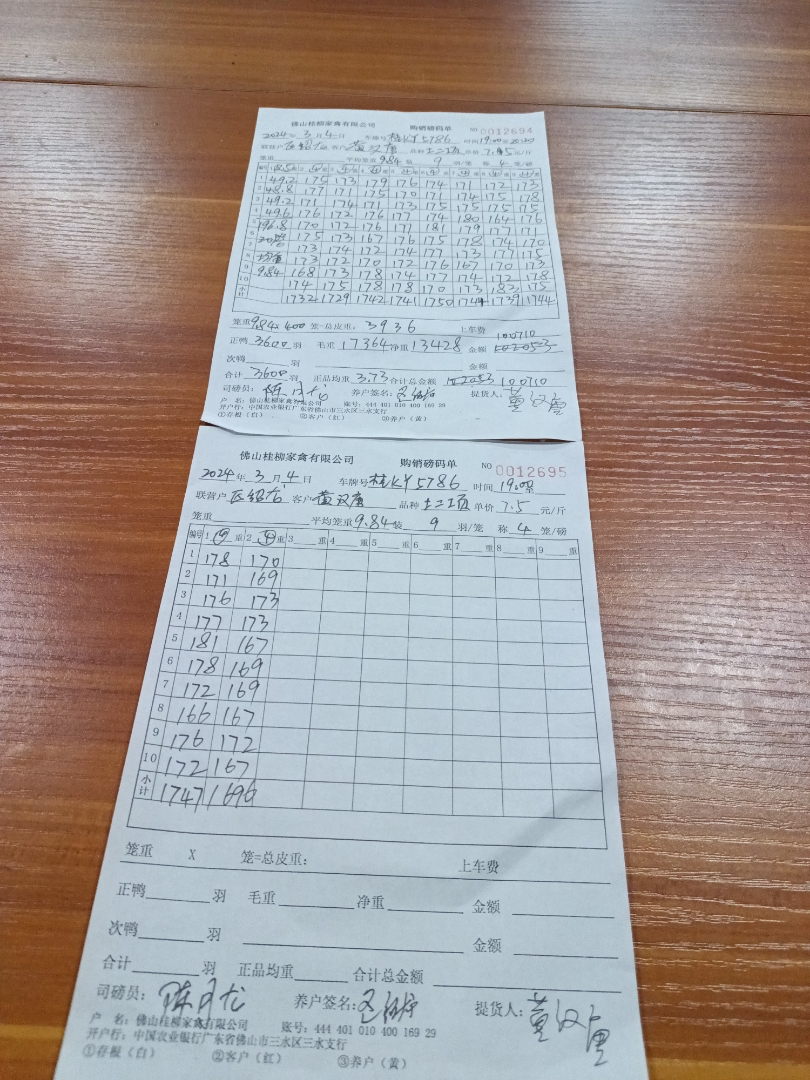 佛山桂柳家禽有限公司 购销磅码单 NO 0012694
2024年 3月4日 车牌号 桂KY5786 时间 19:00
客户 黄汉唐 品种 土二项 单价 7.5元/斤
笼重 平均笼重 9.84 装 9 羽/笼 称 4 笼/磅
49.2 175 173 179 176 174 171 172 173
48.8 177 171 175 170 171 174 175 178
49.2 171 174 171 173 175 175 175 175
49.6 176 172 176 177 174 180 164 176
196.8 170 172 176 171 181 179 177 171
20 175 173 167 176 175 178 174 170
173 174 172 174 177 173 177 175
均重 173 172 170 172 176 167 170 173
9.84 168 173 178 174 177 174 172 178
174 175 178 178 170 173 182 175
小计 1732 1729 1742 1741 1750 1744 1739 1744
笼重 9.84×400 笼=总皮重: 3936 上车费
100710
正鸭 3600 羽 毛重 17364 净重 13428 金额
次鸭 羽 金额
合计 3600 羽 正品均重 3.73 合计总金额 100710
司磅员: 陈月龙 养户签名: 提货人: 黄汉唐
户 名: 佛山桂柳家禽有限公司 账号: 444 401 010 400 169 29
开户行: 中国农业银行广东省佛山市三水区三水支行
①存根（白） ②客户（红） ③养户（黄）
佛山桂柳家禽有限公司 购销磅码单 NO 0012695
2024年 3月4日 车牌号 桂KY5786 时间 19:00
联营户 客户 黄汉唐 品种 土二项 单价 7.5 元/斤
笼重 平均笼重 9.84 装 9 羽/笼 称 4 笼/磅
编号 1 重 2 重 3 重 4 重 5 重 6 重 7 重 8 重 9 重
1 178 170
2 171 169
3 176 173
4 177 173
5 181 167
6 178 169
7 172 169
8 166 167
9 176 172
10 172 167
小计 1747 1696
笼重 X 笼=总皮重: 上车费
正鸭 羽 毛重 净重 金额
次鸭 羽 金额
合计 羽 正品均重 合计总金额
司磅员: 陈月龙 养户签名: 提货人: 黄汉唐
户 名: 佛山桂柳家禽有限公司 账号: 444 401 010 400 169 29
开户行: 中国农业银行广东省佛山市三水区三水支行
①存根（白） ②客户（红） ③养户（黄）